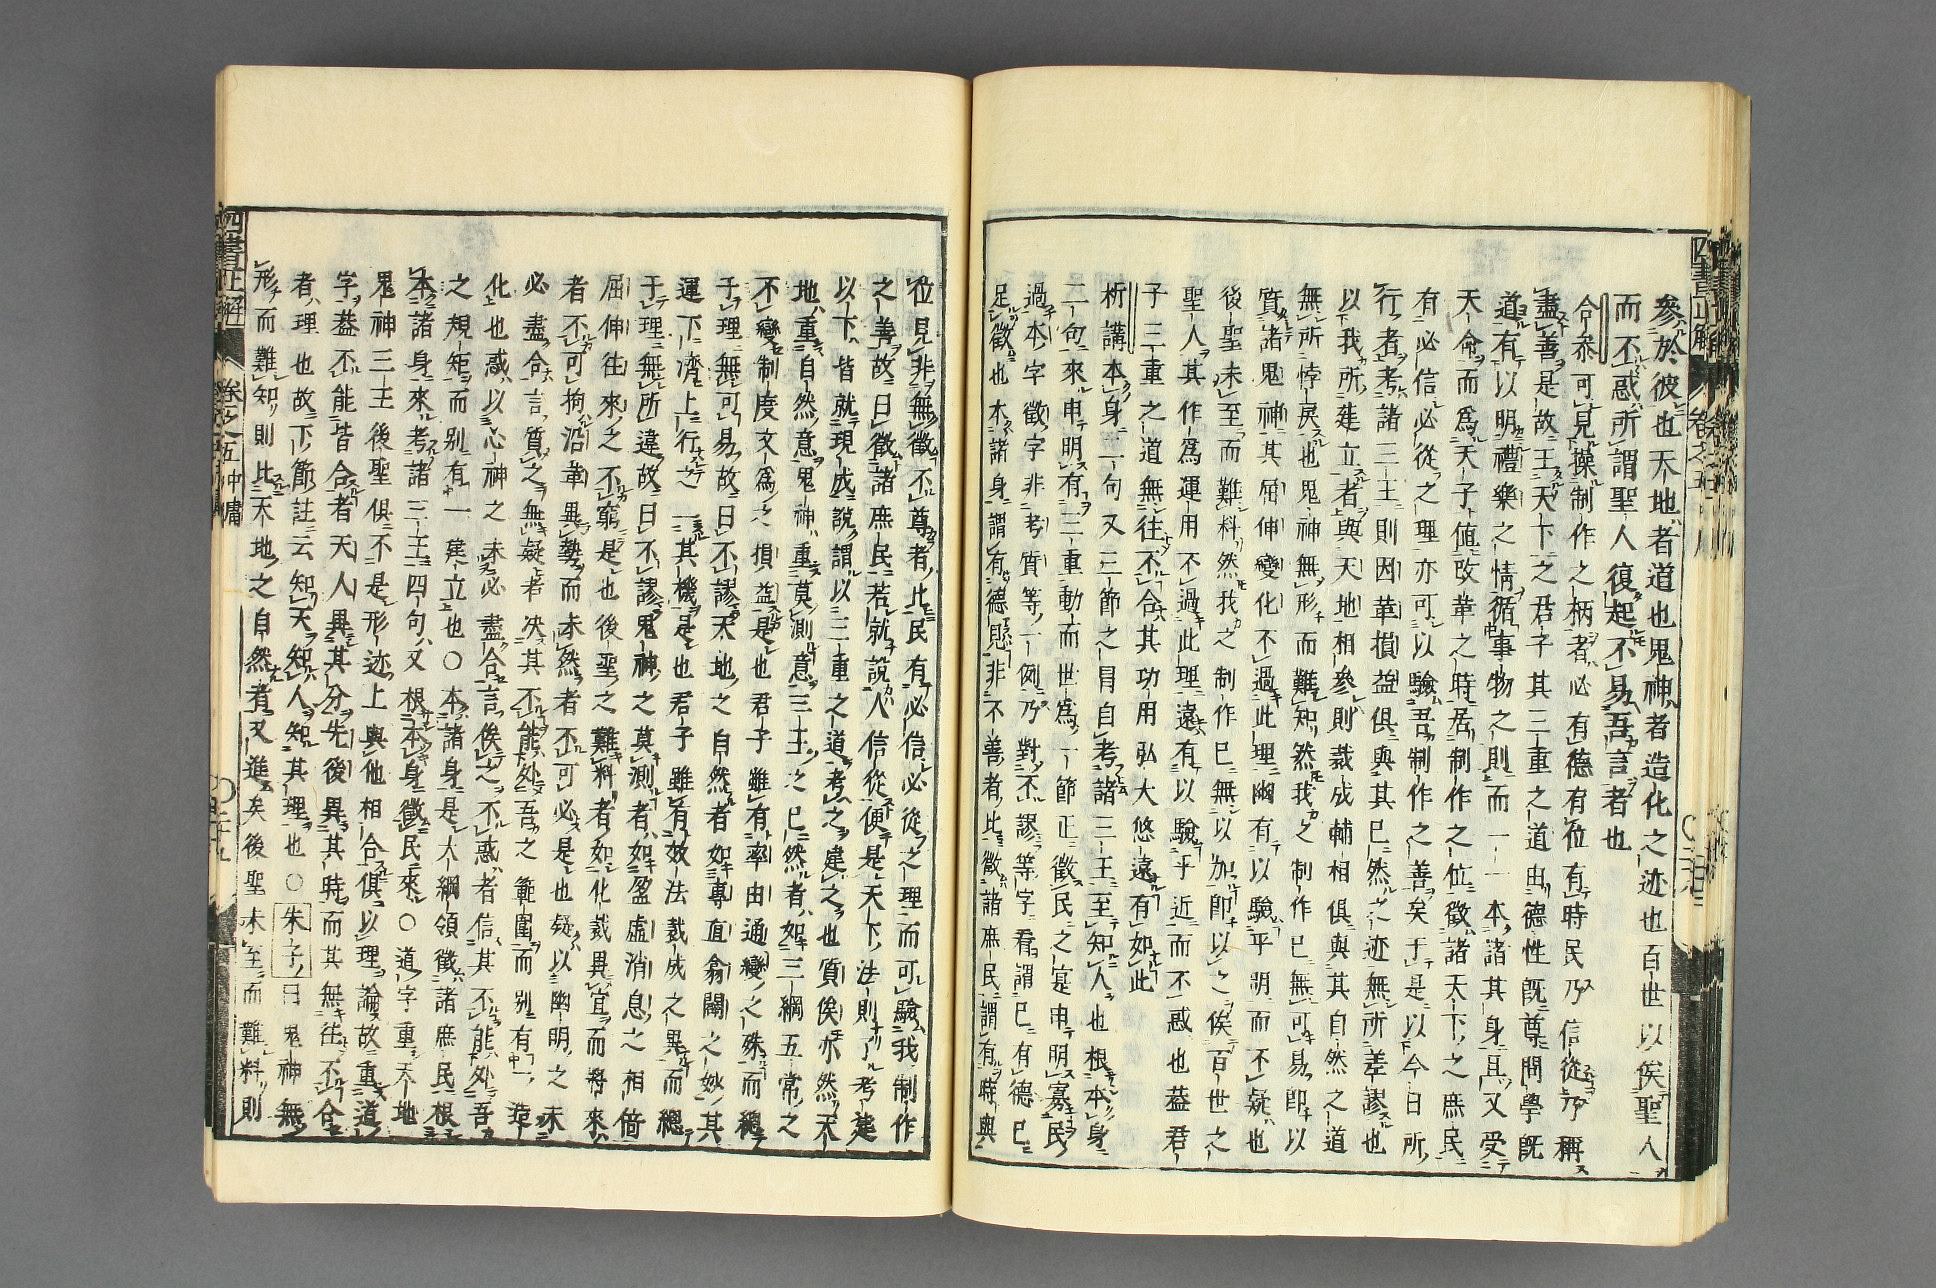 參於彼也天地者道也鬼神者造化之迹也百世以俟聖人
而不惑所謂聖人復起不易吾言者也
合叅可見操制作之柄者必有德有位有時民乃信從乃稱
盡善是故王天下之君子其三重之道由德性既尊問學既
道有以明禮樂之情循事物之則而一一本諸其身且又受
天命而爲天子值改革之時居制作之位徵諸天下之庶民
有必信必從之理亦可以驗吾制作之善矣于是以今日所
行者考諸三王則因革損益俱與其已然之迹無所差謬也
以我所建立者與天地相參則裁成輔相俱與其自然之道
無所悖戾也鬼神無形而難知然我之制作已無可易卽以
質諸鬼神其屈伸變化不過此理幽有以驗乎明而不疑也
後聖未至而難料然我之制作已無以加卽以之俟百世之
聖人其作爲運用不過此理遠有以驗乎近而不惑也葢君
子三重之道無往不合其功用弘大悠遠有如此
析講本身二句又三節之冒自考諸三王至知人也根本身
二句來申明有三重動而世爲一節正徵民之寔申明寡民
過本字徵字非考質等一例乃對不謬等字看謂已有德已
足徵也本諸身謂有德懸非不善者比徵諸庶民謂有時與
位見非無徵不尊者比民有必信必從之理而可驗我制作
之善故曰徵諸庶民若就說人信從便是天下法則了考建
以下皆就現成說謂以三重之道考之建之也質俟亦然天
地重自然意鬼神重莫測意三王之已然者如三綱五常之
不變制度文爲之損益是也君子雖有率由通變之殊而總
于理無可易故曰不謬天地之自然者如專直翕闢之妙其
運下濟上行之一其機是也君子雖有效法裁成之異而總
于理無所違故曰不謬鬼神之莫測者如盈虛消息之相倚
屈伸往來之不窮是也後聖之難料者如化裁異宜而將來
者不可拘沿革異勢而未然者不可必是也疑以幽明之未
必盡合言質之無疑者决其不能外吾之範圍而别有一造
化也惑以心神之未必盡合言俟之不惑者信其不能外吾
之規矩而别有一建立也〇本諸身是大綱領徵諸庶民根
本諸身來考諸三王四句又根本身徵民來〇道字重天地
鬼神三王後聖俱不是形迹上與他相合俱以理論故重道
字葢不能皆合者天人異其分先後異其時而其無往不合
者理也故下節註云知天知人知其理也〇朱子曰鬼神無
形而難知則比天地之自然者又進矣後聖未至而難料則
四書正解 卷之五 中庸